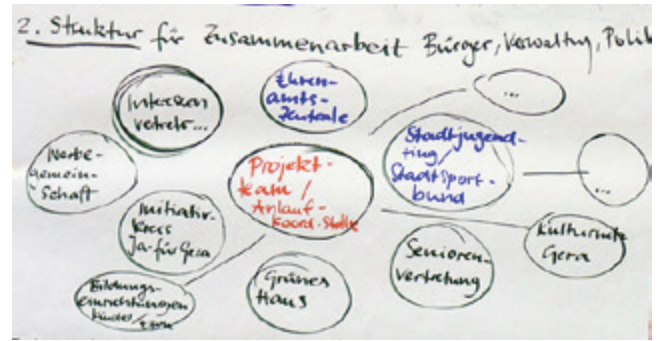 2. Struktur für Zusammenarbeit Bürger, Verwaltung, Politik
Interessen
vertretr...
Ehren-
amts-
Zentrale
...
Werbe-
gemein-
schaft
Projekt-
team /
Anlauf-
Koord.-Stelle
Stadtjugend-
ring /
Stadtsport-
bund
...
Initiativ-
kreis
Ja-für Gera
Senioren-
vertretung
Gera
Bildungs-
einrichtungen
Kinder /
Grünes
Haus